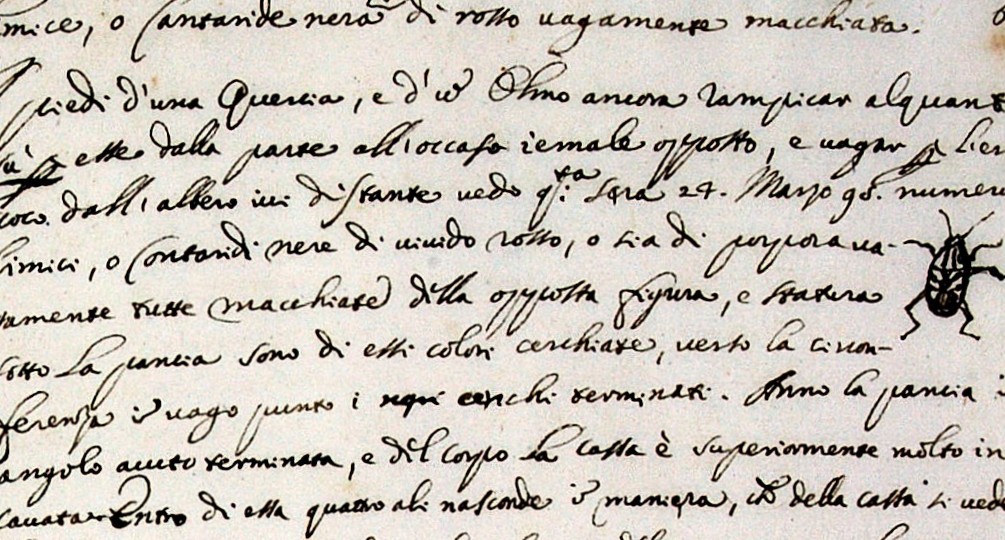 mice, o Cantaride nera di rosso vagamente macchiata.
piedi d'una Quercia, e d'un Olmo ancora rampicar alquant
sù p esse dalla parte all'occaso iemale opposto, e vagar p lier
loco dall'albero ivi distante vedo qsta sera 24. Marzo 98. numer
Cimici, o Cantaridi nere di vivido rosso, o sia di porpora va-
tamente tutte macchiate della opposta figura, e statura
sotto la pancia sono di essi colori cerchiate, verso la circon-
ferenza in vago punto i cerchi terminati. Anno la pancia i
angolo acuto terminata, e del corpo la cassa è superiormente molto in
cavata. Entro di essa quattro ali nasconde in maniera, che della cassa si ved